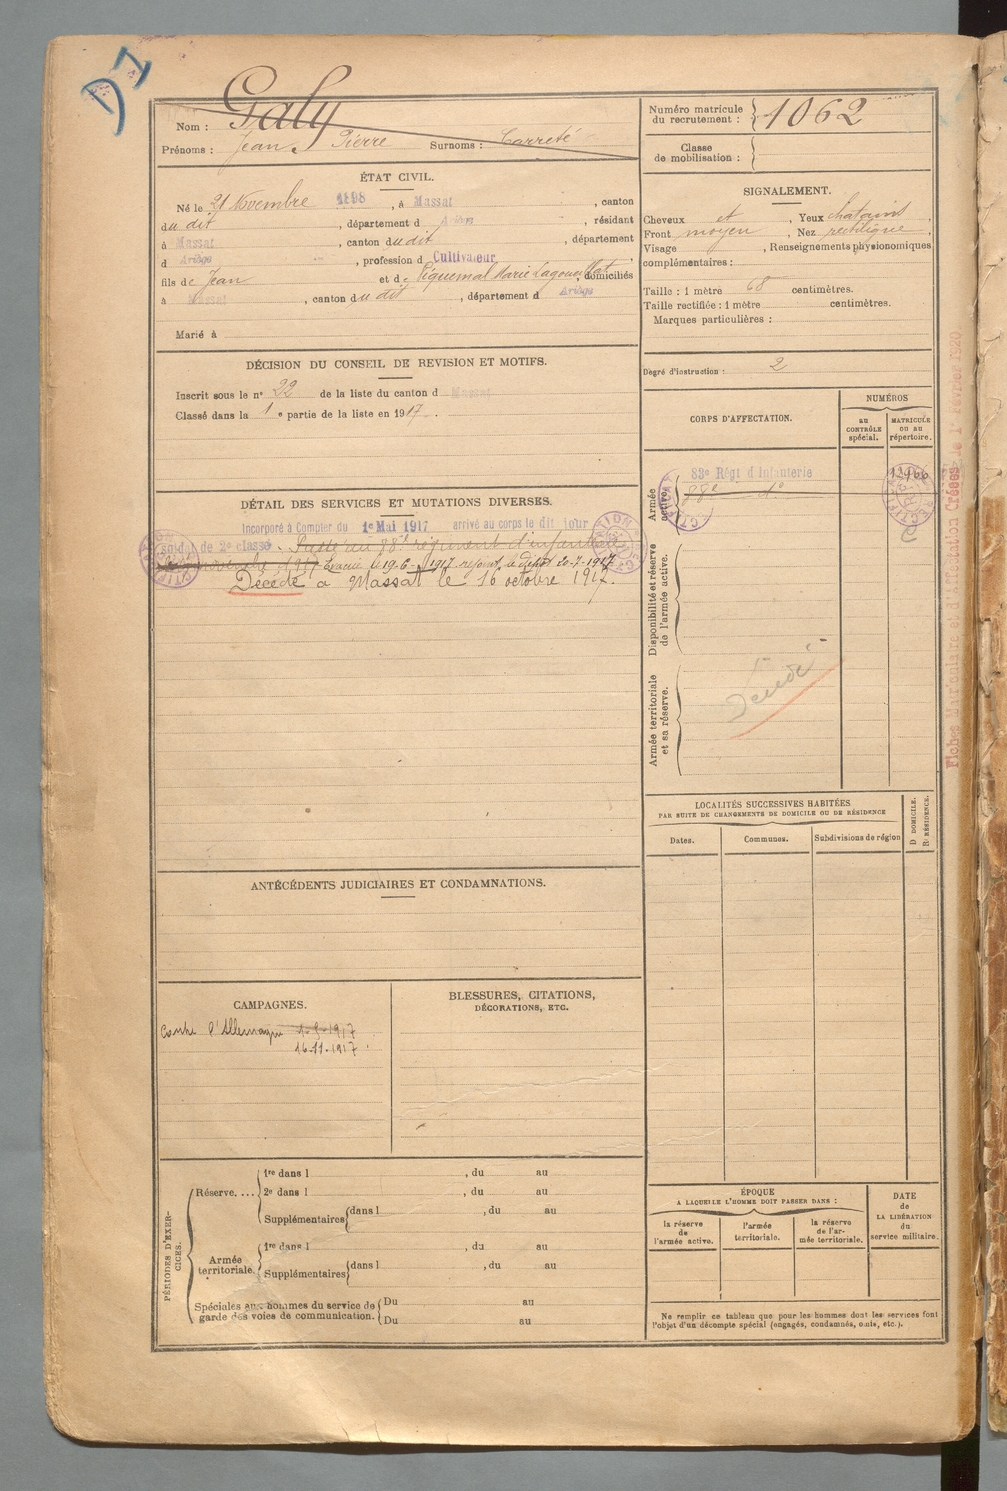 D1
Nom : Galy
Prénoms : Jean Pierre Surnoms : Carreté
Numéro matricule du recrutement : 1062
Classe de mobilisation :
ÉTAT CIVIL.
Né le 21 Novembre 1898, à Massat, canton
du dit, département d Ariège, résidant
à Massat, canton du dit, département
d Ariège, profession d Cultivateur
fils de Jean et de Piquemal Marie, domiciliés
à Massat, canton du dit, département d Ariège
Marié à
SIGNALEMENT.
Cheveux et, Yeux chatains,
Front moyen, Nez rectiligne,
Visage, Renseignements physionomiques
complémentaires :
Taille : 1 mètre 68 centimètres.
Taille rectifiée : 1 mètre centimètres.
Marques particulières :
Degré d'instruction : 2
DÉCISION DU CONSEIL DE REVISION ET MOTIFS.
Inscrit sous le n° 22 de la liste du canton d Massat
Classé dans la 1 e partie de la liste en 1917.
DÉTAIL DES SERVICES ET MUTATIONS DIVERSES.
Incorporé à Compter du 1er Mai 1917 arrivé au corps le dit jour
soldat de 2e classe. Passé au 88e régiment d'infanterie
novembre 1917 Evacué le 19-6-1917
Décédé à Massat le 16 octobre 1917.
CORPS D'AFFECTATION.
NUMÉROS
au CONTRÔLE spécial.
MATRICULE ou au répertoire.
Armée active.
83e Régt d'Infanterie
88e do
Disponibilité et réserve de l'armée active.
Armée territoriale et sa réserve.
Décédé
Fiches Matriculaire et d'Affectation Créées le 1er Février 1920
LOCALITÉS SUCCESSIVES HABITÉES
PAR SUITE DE CHANGEMENTS DE DOMICILE OU DE RÉSIDENCE
Dates.
Communes.
Subdivisions de région
D DOMICILE.
R: RÉSIDENCE.
ANTÉCÉDENTS JUDICIAIRES ET CONDAMNATIONS.
CAMPAGNES.
Contre l'Allemagne 1-5-1917
16-11-1917.
BLESSURES, CITATIONS,
DÉCORATIONS, ETC.
PÉRIODES D'EXERCICES.
Réserve....
1re dans l , du au
2e dans l , du au
Supplémentaires dans l , du au
Armée territoriale.
1re dans l , du au
Supplémentaires dans l , du au
Spéciales aux hommes du service de garde des voies de communication.
Du au
Du au
ÉPOQUE
A LAQUELLE L'HOMME DOIT PASSER DANS :
la réserve de l'armée active.
l'armée territoriale.
la réserve de l'armée territoriale.
DATE de LA LIBÉRATION du service militaire.
Ne remplir ce tableau que pour les hommes dont les services font
l'objet d'un décompte spécial (engagés, condamnés, omis, etc.).